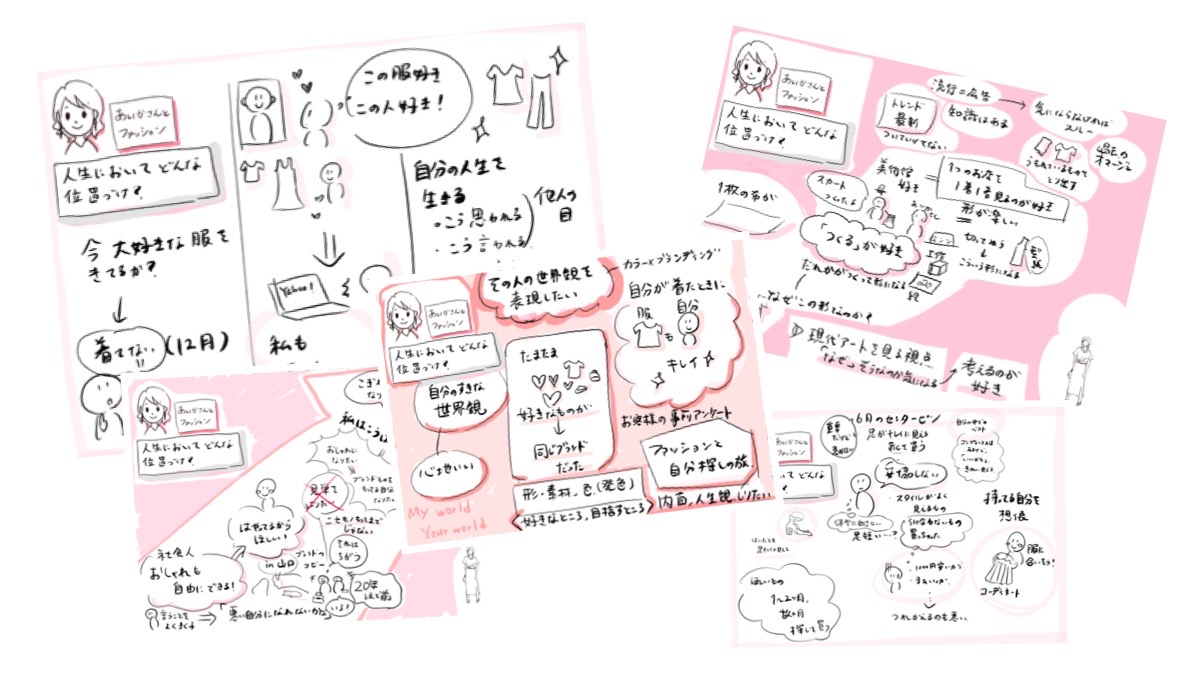 あいかさんと
ファッション
人生において どんな
位置づけ?
今 大好きな服を
きてるか?
着てない!!
(12月)
この服好き
この人好き!
Yahoo!
私も
自分の人生を
生きる
・こう思われる
・こう言われる
他人の
目
あいかさんと
ファッション
人生において どんな
位置づけ?
流行=広告
トレンド
最新
ついていけてない
知識はある
気にならなければ
スルー
うもれているものを
とり出す
過去の
オマージュ
美術館
好き
1つのお店を
1着1着見るのが好き
形が楽しい
スカート
1枚の布が
「つくる」が好き
だれかがつくって形になる
切ってぬう
こういう形になる
工作
なぜこの形なのか?
現代アートを見る視点
「なぜ」そうなのか気になる
考えるのが
好き
あいかさんと
ファッション
人生において どんな
位置づけ?
その人の世界観を
表現したい
カラー×ブランディング
自分のすきな
世界観
心地いい
My world
Your world
たまたま
好きなものが
同じブランド
だった
形・素材・色(発色)
好きなところ,目指すところ
自分が着たときに
服
も
自分
キレイ
お客様の事前アンケート
ファッションと
自分探しの旅
内面,人生観,しりたい
あいかさんと
ファッション
人生において どんな
位置づけ?
おしゃれに
なりたい
見栄で
はりたい
はやってるから
ほしい!
社会人
おしゃれも
自由にできる!
in 山口
ブランドの
コピー
ニセモノもってまで
じゃない
それは
ちがう
20年
ほど前
言うことを
よくきく子
悪い自分になれないかな
あいかさんと
ファッション
人生において どんな
位置づけ?
6月のセンタープレス
足がキレイに見える
妥協しない
スタイルがよく
見えるもの
似合わないもの
買っちゃった
1000円安いから
まぁいいか
つれてかえるのも悪い
持ってる自分を
想像
服に
合いそう!
コーディネート
ほしいもの
1~2か月,
数か月
探して買う